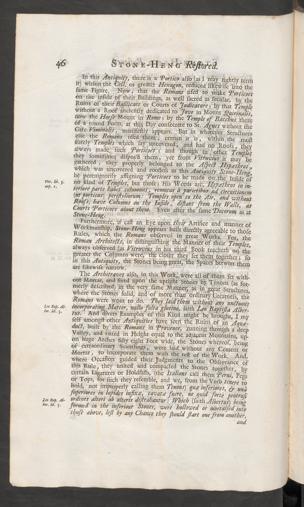 46 STONE-HENG Restored.
In this Antiquity, there is a Portico also (as I may rightly term
it) within the Cell, or greater Hexagon, reduced likewise into the
same Figure. Now, that the Romans used to make Porticoes
on the inside of their Buildings, as well sacred as secular, by the
Ruins of their Basilicæs or Courts of Judicature; by that Temple
without a Roof anciently dedicated to Jove in Monte Quirinalis,
now the Horse Mount in Rome; by the Temple of Bacchus there
of a round Form, at this Day consecrate to St. Agnes without the
Gate Viminalis, manifestly appears. But in whatever Structures
else the Romans used them, certain it is, within the most
stately Temples which lay uncovered, and had no Roofs, they
always made such Porticoes: and though in other Temples
they sometimes dispos'd them, yet from Vitruvius it may be
gathered, they properly belonged to the Aspect Hypæthros,
which was uncovered and roofless as this Antiquity Stone-Heng,
he peremptorily assigning Porticoes to be made on the Inside of
no kind of Temple, but such: his Words are, Hypæthros in in-
Vitr. lib. 3.
cap. 1.
teriore parte habet columnas, remotas à parietibus ad circuitionem
(ut porticus) peristyliorum. Temples open to the Air, and without
Roofs, have Columns on the Inside, distant from the Walls, as
Courts Porticoes about them. Even after the same Decorum as at
Stone-Heng.
Furthermore, if cast an Eye upon their Artifice and manner of
Workmanship, Stone-Heng appears built directly agreeable to those
Rules, which the Romans observed in great Works. For, the
Roman Architects, in distinguishing the Manner of their Temples,
always observed (as Vitruvius in his third Book teacheth us) the
greater the Columns were, the closer they set them together; so
in this Antiquity, the Stones being great, the Spaces betwixt them
are likewise narrow.
The Architraves also, in this Work, were all of them set with-
out Mortar, and fixed upon the upright Stones by Tenons (as for-
merly described) in the very same Manner, as in great Structures,
where the Stones solid, and of more than ordinary Lineaments, the
Romans were wont to do. They laid them without any unctuous
incorporating Matter, nullo fulta glutino, saith Leo Baptista Alber-
Leo Bap. Al-
ber. lib. 3.
tus. And divers Examples of this Kind might be brought, I my
self amongst other Antiquities have seen the Ruins of an Aque-
duct, built by the Romans in Provence, running through a deep
Valley, and raised in Height equal to the adjacent Mountains, up-
on huge Arches fifty eight Foot wide, the Stones whereof, being
of extraordinary Scantlings, were laid without any Cement or
Mortar, to incorporate them with the rest of the Work. And,
where Occasion guided their Judgments to the Observance of
this Rule, they united and compacted the Stones together, by
certain Ligatures or Holdfasts, (the Italians call them Perni, Pegs
or Tops, for such they resemble, and we, from the Verb tenere to
hold, not improperly calling them Tenons) quæ inferiores, & una
superiores in lapides infixa, cavata fuere, ne quid forte protrusi
ordines alteri ab alteris distrahantur: Which (saith Albertus) being
Leo Bap. Al-
ber. lib. 3.
formed in the inferiour Stones, were hollowed or mortaised into
those above, lest by any Chance they should start one from another,
and